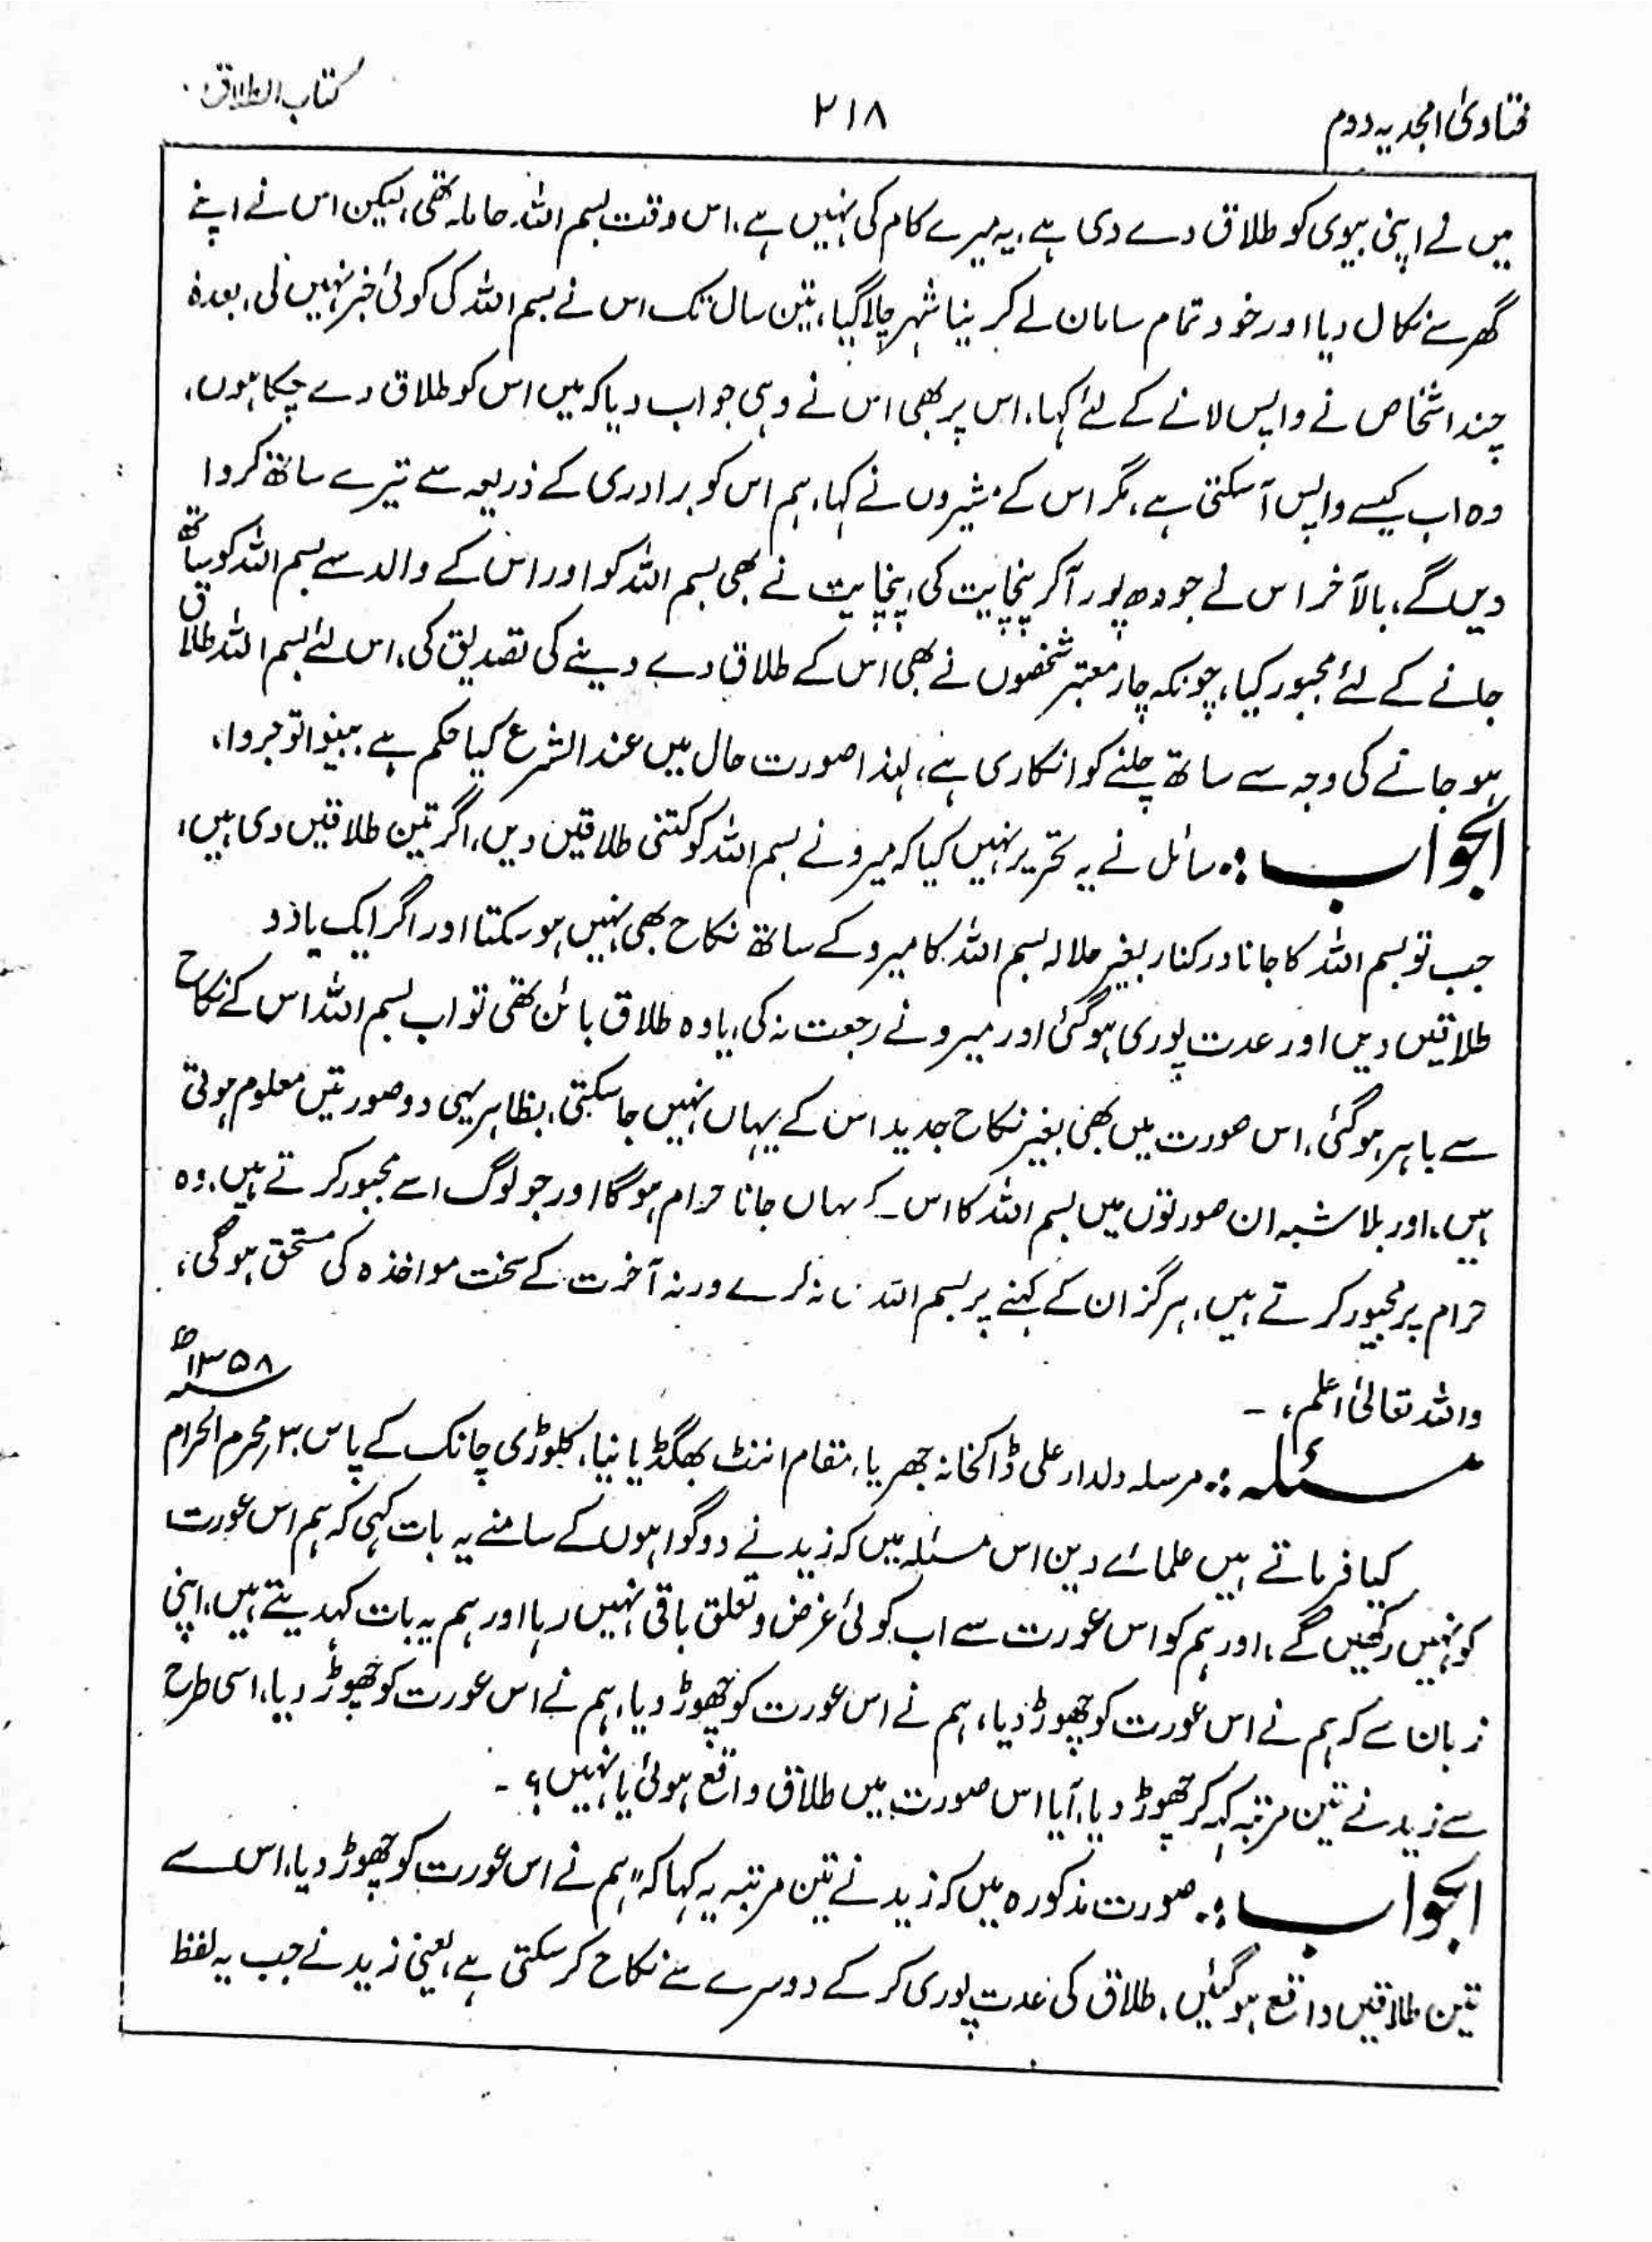 فتاویٰ امجدیہ دوم
۲۱۸
کتاب الطلاق
میں نے اپنی بیوی کو طلاق دے دی ہے، یہ میرے کام کی نہیں ہے، اس وقت بسم اللہ حاملہ تھی، لیکن اس نے اپنے
گھر سے نکال دیا اور خود تمام سامان لے کر نیا شہر چلا گیا، تین سال تک اس نے بسم اللہ کی کوئی خبر نہیں لی، بعدہٗ
چند اشخاص نے واپس لانے کے لئے کہا، اس پر بھی اس نے وہی جواب دیا کہ میں اس کو طلاق دے چکا ہوں،
وہ اب کیسے واپس آسکتی ہے، مگر اس کے مشیروں نے کہا، ہم اس کو برادری کے ذریعہ سے تیرے ساتھ کروا
دیں گے، بالآخر اس نے جودھپور آکر پنچایت کی، پنچایت نے بھی بسم اللہ کو اور اس کے والد سے بسم اللہ کو ساتھ
جانے کے لئے مجبور کیا، چونکہ چار معتبر شخصوں نے بھی اس کے طلاق دے دینے کی تصدیق کی، اس لئے بسم اللہ طلاق
ہو جانے کی وجہ سے ساتھ چلنے کو انکاری ہے، لہٰذا صورت حال میں عند الشرع کیا حکم ہے بینوا توجروا،
الجواب :۔ سائل نے یہ تحریر نہیں کیا کہ میرو نے بسم اللہ کو کتنی طلاقیں دیں، اگر تین طلاقیں دی ہیں،
جب تو بسم اللہ کا جانا درکنار بغیر حلالہ بسم اللہ کا میرو کے ساتھ نکاح بھی نہیں ہو سکتا اور اگر ایک یا دو
طلاقیں دیں اور عدت پوری ہوگئی اور میرو نے رجعت نہ کی، یا وہ طلاق بائن تھی تو اب بسم اللہ اس کے نکاح
سے باہر ہوگئی، اس صورت میں بھی بغیر نکاح جدید اس کے یہاں نہیں جاسکتی، بظاہر یہی دو صورتیں معلوم ہوتی
ہیں، اور بلا شبہ ان صورتوں میں بسم اللہ کا اس کے یہاں جانا حرام ہوگا اور جو لوگ اسے مجبور کرتے ہیں، وہ
حرام پر مجبور کرتے ہیں، ہرگز ان کے کہنے پر بسم اللہ نہ کرے ورنہ آخرت کے سخت مواخذہ کی مستحق ہوگی،
واللہ تعالیٰ اعلم، ۔
مسئلہ :۔ مرسلہ دلدار علی ڈاکخانہ جھریا، مقام اننٹ بھگڈیا نیا، کلوڑی چانک کے پاس ۳؍ محرم الحرام ۱۳۵۸ھ
کیا فرماتے ہیں علمائے دین اس مسئلہ میں کہ زید نے دو گواہوں کے سامنے یہ بات کہی کہ ہم اس عورت
کو نہیں رکھیں گے، اور ہم کو اس عورت سے اب کوئی غرض و تعلق باقی نہیں رہا اور ہم یہ بات کہدیتے ہیں، اپنی
زبان سے کہ ہم نے اس عورت کو چھوڑ دیا، ہم نے اس عورت کو چھوڑ دیا، ہم نے اس عورت کو چھوڑ دیا، اسی طرح
سے زید نے تین مرتبہ کہہ کر چھوڑ دیا، آیا اس صورت میں طلاق واقع ہوئی یا نہیں؟ ۔
الجواب :۔ صورت مذکورہ میں کہ زید نے تین مرتبہ یہ کہا کہ "ہم نے اس عورت کو چھوڑ دیا، اس سے
تین طلاقیں واقع ہوگئیں، طلاق کی عدت پوری کر کے دوسرے سے نکاح کر سکتی ہے، یعنی زید نے جب یہ لفظ